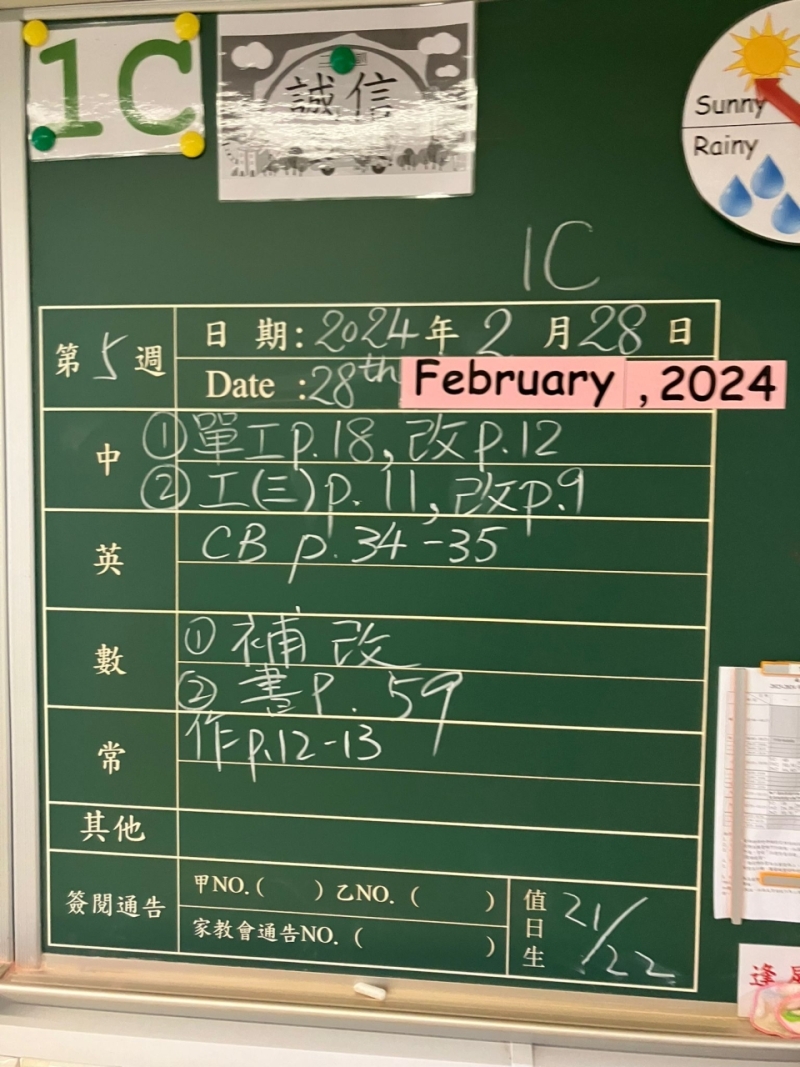 1C
誠信
Sunny
Rainy
1C
第5週
日期:2024年2月28日
Date :28th February , 2024
中
①單工p.18,改p.12
②工(三)p.11,改p.9
英
CB p.34-35
數
①補改
②書P.59
常
作p.12-13
其他
簽閱通告
甲NO.( )乙NO.( )
家教會通告NO.( )
值日生
21/22
逢